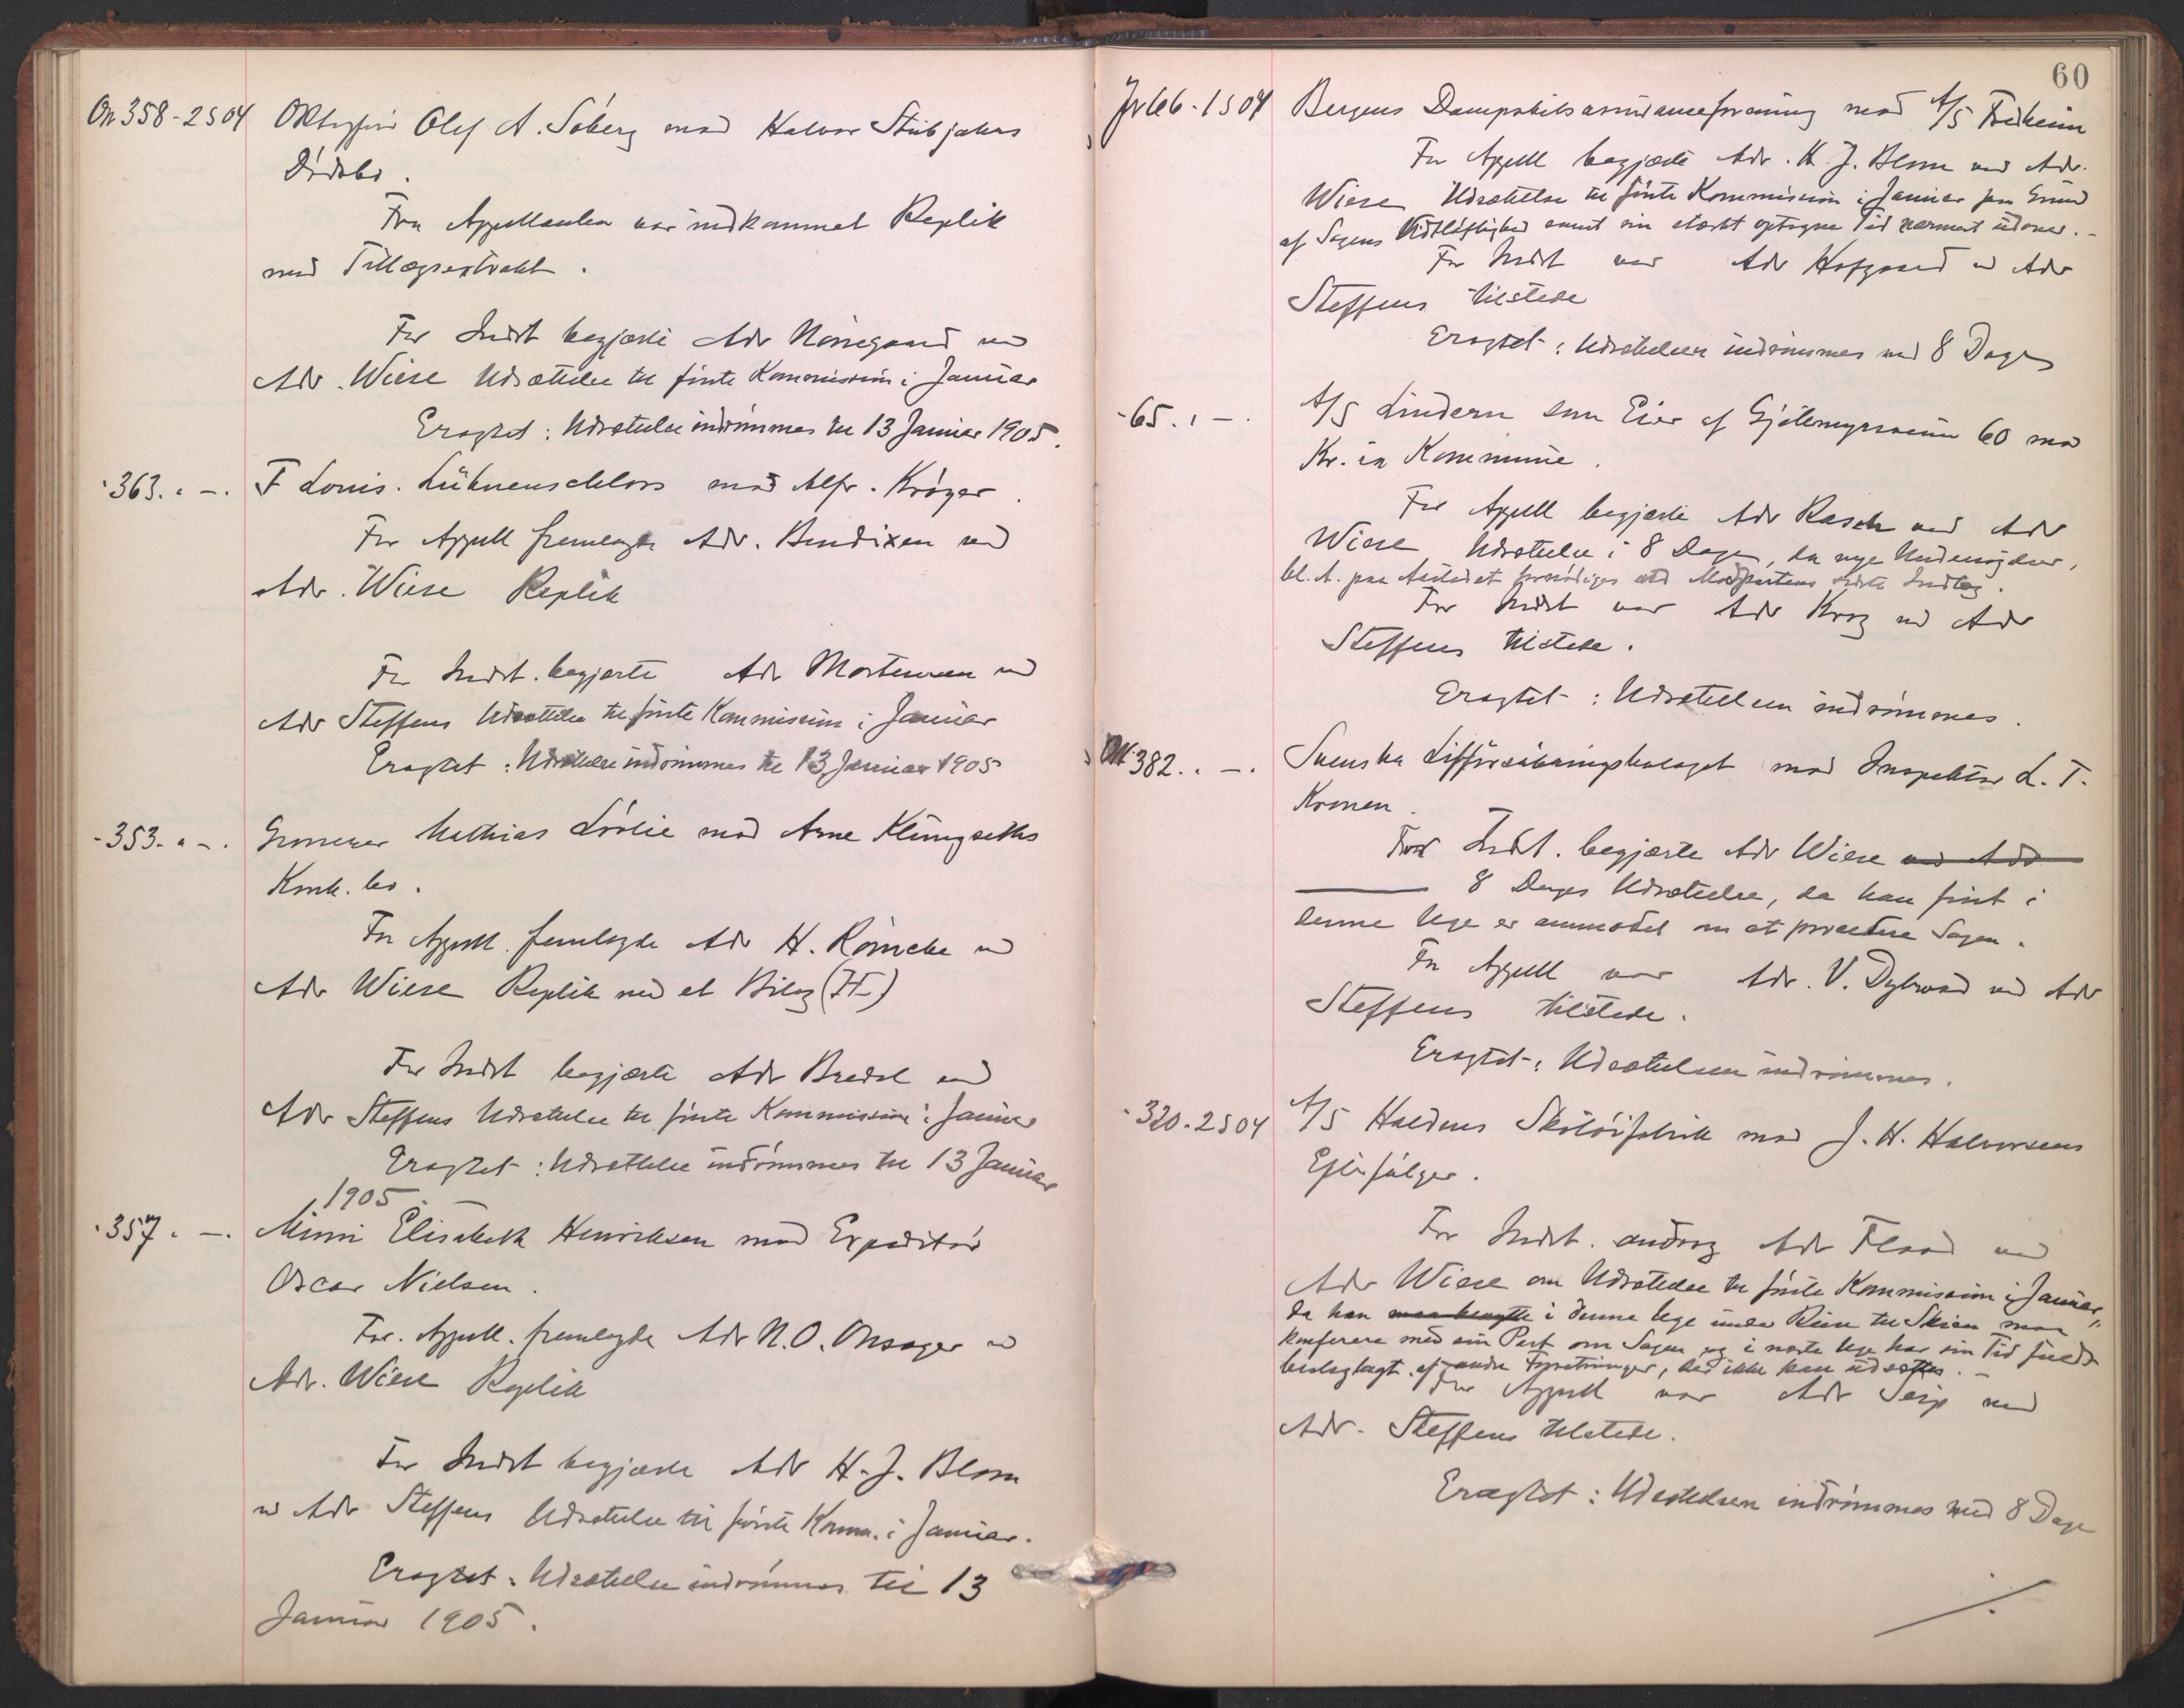 On 358-2 S 04 Olaf A. Söberg mod Halvor Stubjahns
Dödsbo.
Fra Appellanten var indkommet Replik
med Tillægsextrakt.
For Indst begjærte Adv Nörregaard ved
Adv. Wiese Udsættelse til förste Kommission i Januar
Eragtet: Udsættelse indrömmes til 13 Januar 1905.
-363. " -. F Louis. Lühnenschloss mod Alfr. Kröger.
For Appell fremlagde Adv. Bendixen ved
Adv. Wiese Replik
For Indst. begjærte Adv Mortensen ved
Adv Steffens Udsættelse til förste Kommission i Januar
Eragtet: Udsættelse indrömmes til 13 Januar 1905
-353. " -. Grosserer Mathias Lörlie mod Arne Klungseths
Konk. bo.
For Appell. fremlagde Adv H. Römcke ved
Adv Wiese Replik med et Bilag (H)
For Indst begjærte Adv Bredal ved
Adv Steffens Udsættelse til förste Kommission i Januar
Eragtet: Udsættelse indrömmes til 13 Januar
1905.
-357. -. Mimi Elisabeth Henriksen mod Expeditör
Oscar Nielsen.
For. Appell. fremlagde Adv N. O. Onsager ved
Adv. Wiese Replik
For Indst begjærte Adv H. J. Blom
v Adv Steffens Udsættelse til förste Komm. i Januar.
Eragtet: Udsættelse indrömmes til 13
Januar 1905.
60
66-1 S 04 Bergens Dampskibsassuranceforening mod A/S Fredheim
For Appell begjærte Adv. H. J. Blom ved Adv.
Wiese Udsættelse til förste Kommission i Januar paa Grund
af Sagens Vidtlöftighed samt sin stærkt optagne Tid nærmest udover.-
For Indst var Adv Hofgaard v Adv
Steffens tilstede
Eragtet: Udsættelsen indrömmes med 8 Dage
-65. " -. A/S Lindern som Eier af Gjötemyrsveien 60 mod
Kr.ia Kommune.
For Appell begjærte Adv Rasch ved Adv
Wiese Udsættelse i 8 Dage, da nye Undersögelser,
bl. A. paa Aastedet fornödiges ved Modpartens sidste Indlæg.
For Indst var Adv Krog ved Adv
Steffens tilstede.
Eragtet: Udsættelsen indrömmes.
On 382. " -. Svenska Lifförsäkringsbolaget mod Inspektör L. T.
Kronen.
For Indst. begjærte Adv Wiese ved Adv
8 Dages Udsættelse, da han först i
denne Uge er anmodet om at procedere Sagen.
For Appell var Adv. V. Dybwad ved Adv
Steffens tilstede.
Eragtet: Udsættelsen indrömmes.
-320-2 S 04 A/S Haldens Skotöifabrik mod J. H. Halvorsens
Efterfölger.
For Indst. androg Adv Flood ved
Adv Wiese om Udsættelse til förste Kommission i Januar,
da han maa benytte i denne Uge under Reise til Skien maa
konferere med sin Part om Sagen og i næste Uge har sin Tid fuldt
beslaglagt af andre Forretninger, der ikke kan udsættes.-
For Appell var Adv Seip ved
Adv. Steffens tilstede.
Eragtet: Udsættelsen indrömmes med 8 Dage